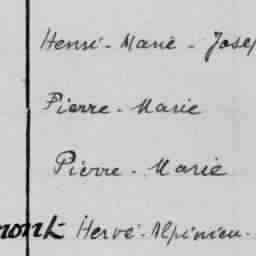 Henri-Marie-Josep
Pierre-Marie
Pierre-Marie
mont Hervé-Alpinien-